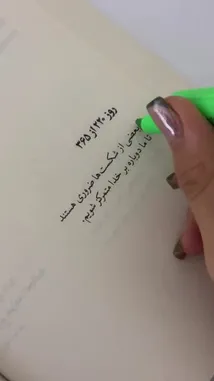 روز ۲۳۰ از ۳۶۵
بعضی از شکست‌ها ضروری هستند
تا ما دوباره بر خدا متمرکز شویم.